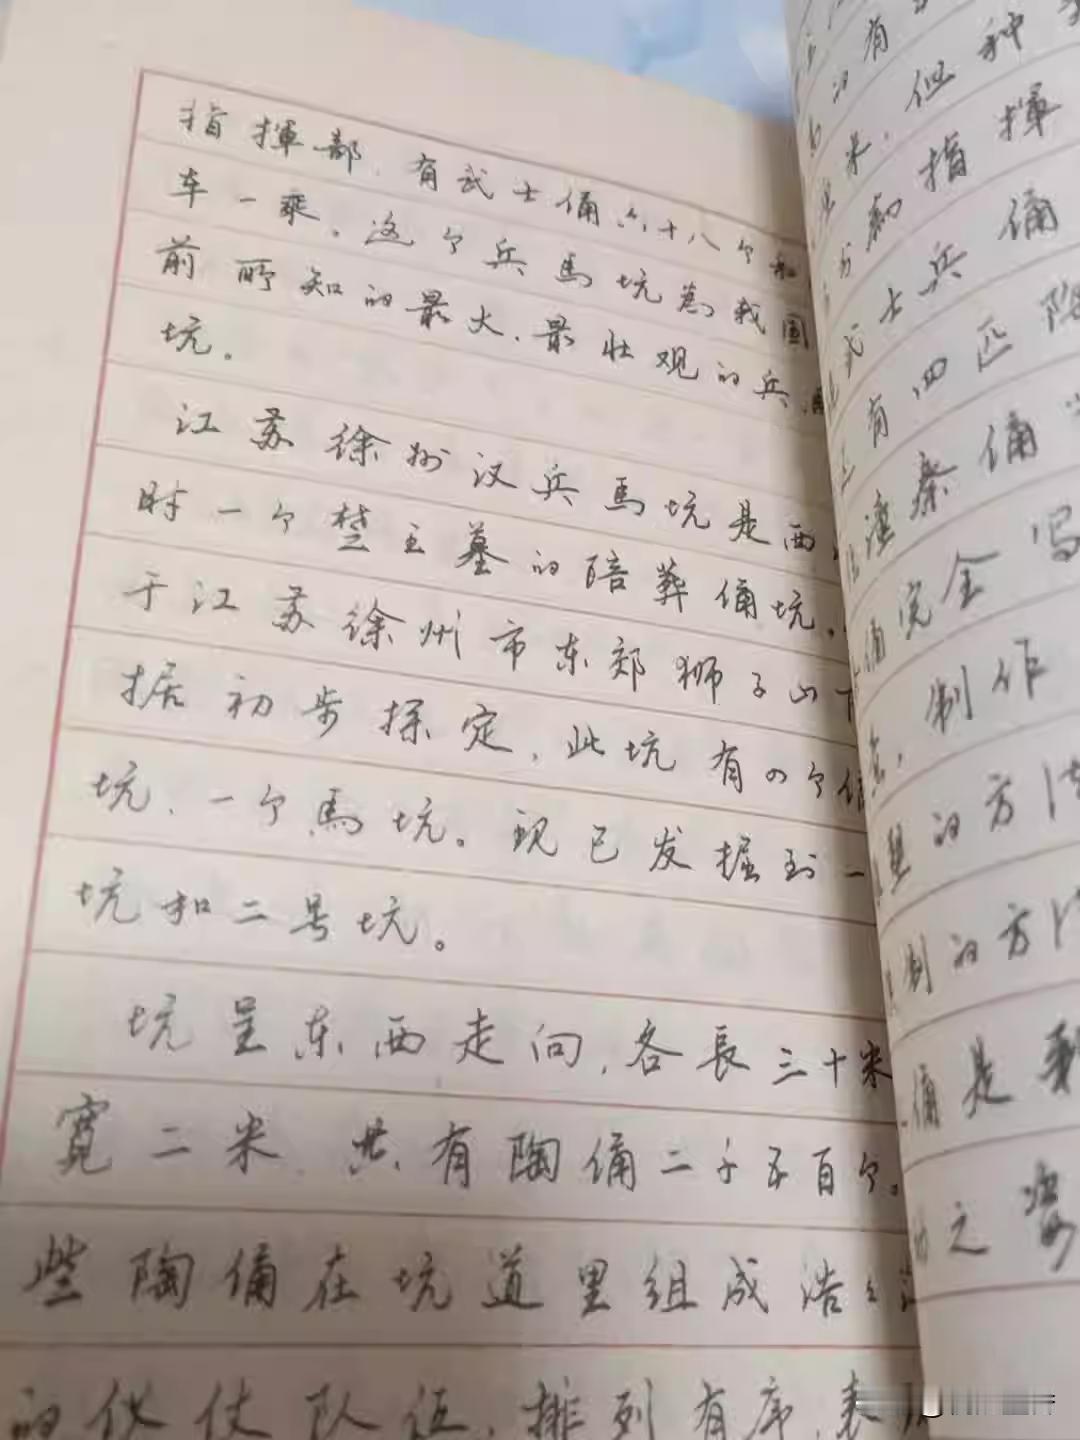 指揮部，有武士俑六十八个和
车一乘。这个兵馬坑為我国
前所知的最大、最壮观的兵
坑。
江苏徐州汉兵馬坑是西
时一个楚王墓的陪葬俑坑。
于江苏徐州市东郊狮子山下
据初步探定，此坑有四个俑
坑、一个馬坑。现已发掘到一
坑和二号坑。
坑呈东西走向，各長三十米
寬二米，共有陶俑二千五百个。
些陶俑在坑道里组成浩浩
的仪仗队伍，排列有序，表
的有
米，但种
和指揮
武士兵俑
有四匹陶
秦俑
俑完全写
制作
塑的方法
制的方法
俑是
之